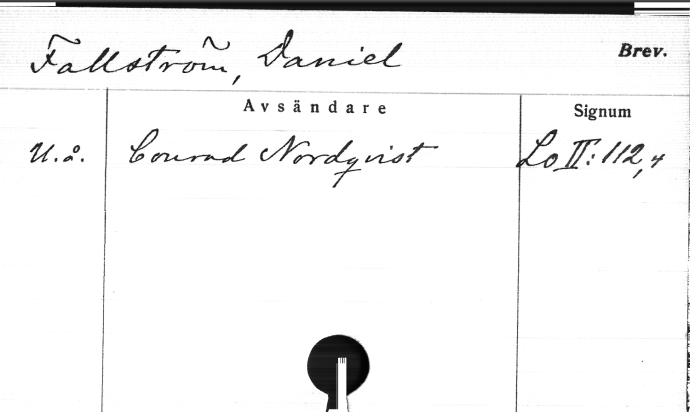 Fallström, Daniel
Brev.
Avsändare
Signum
U.å. Conrad Nordqvist Lo II:112,4